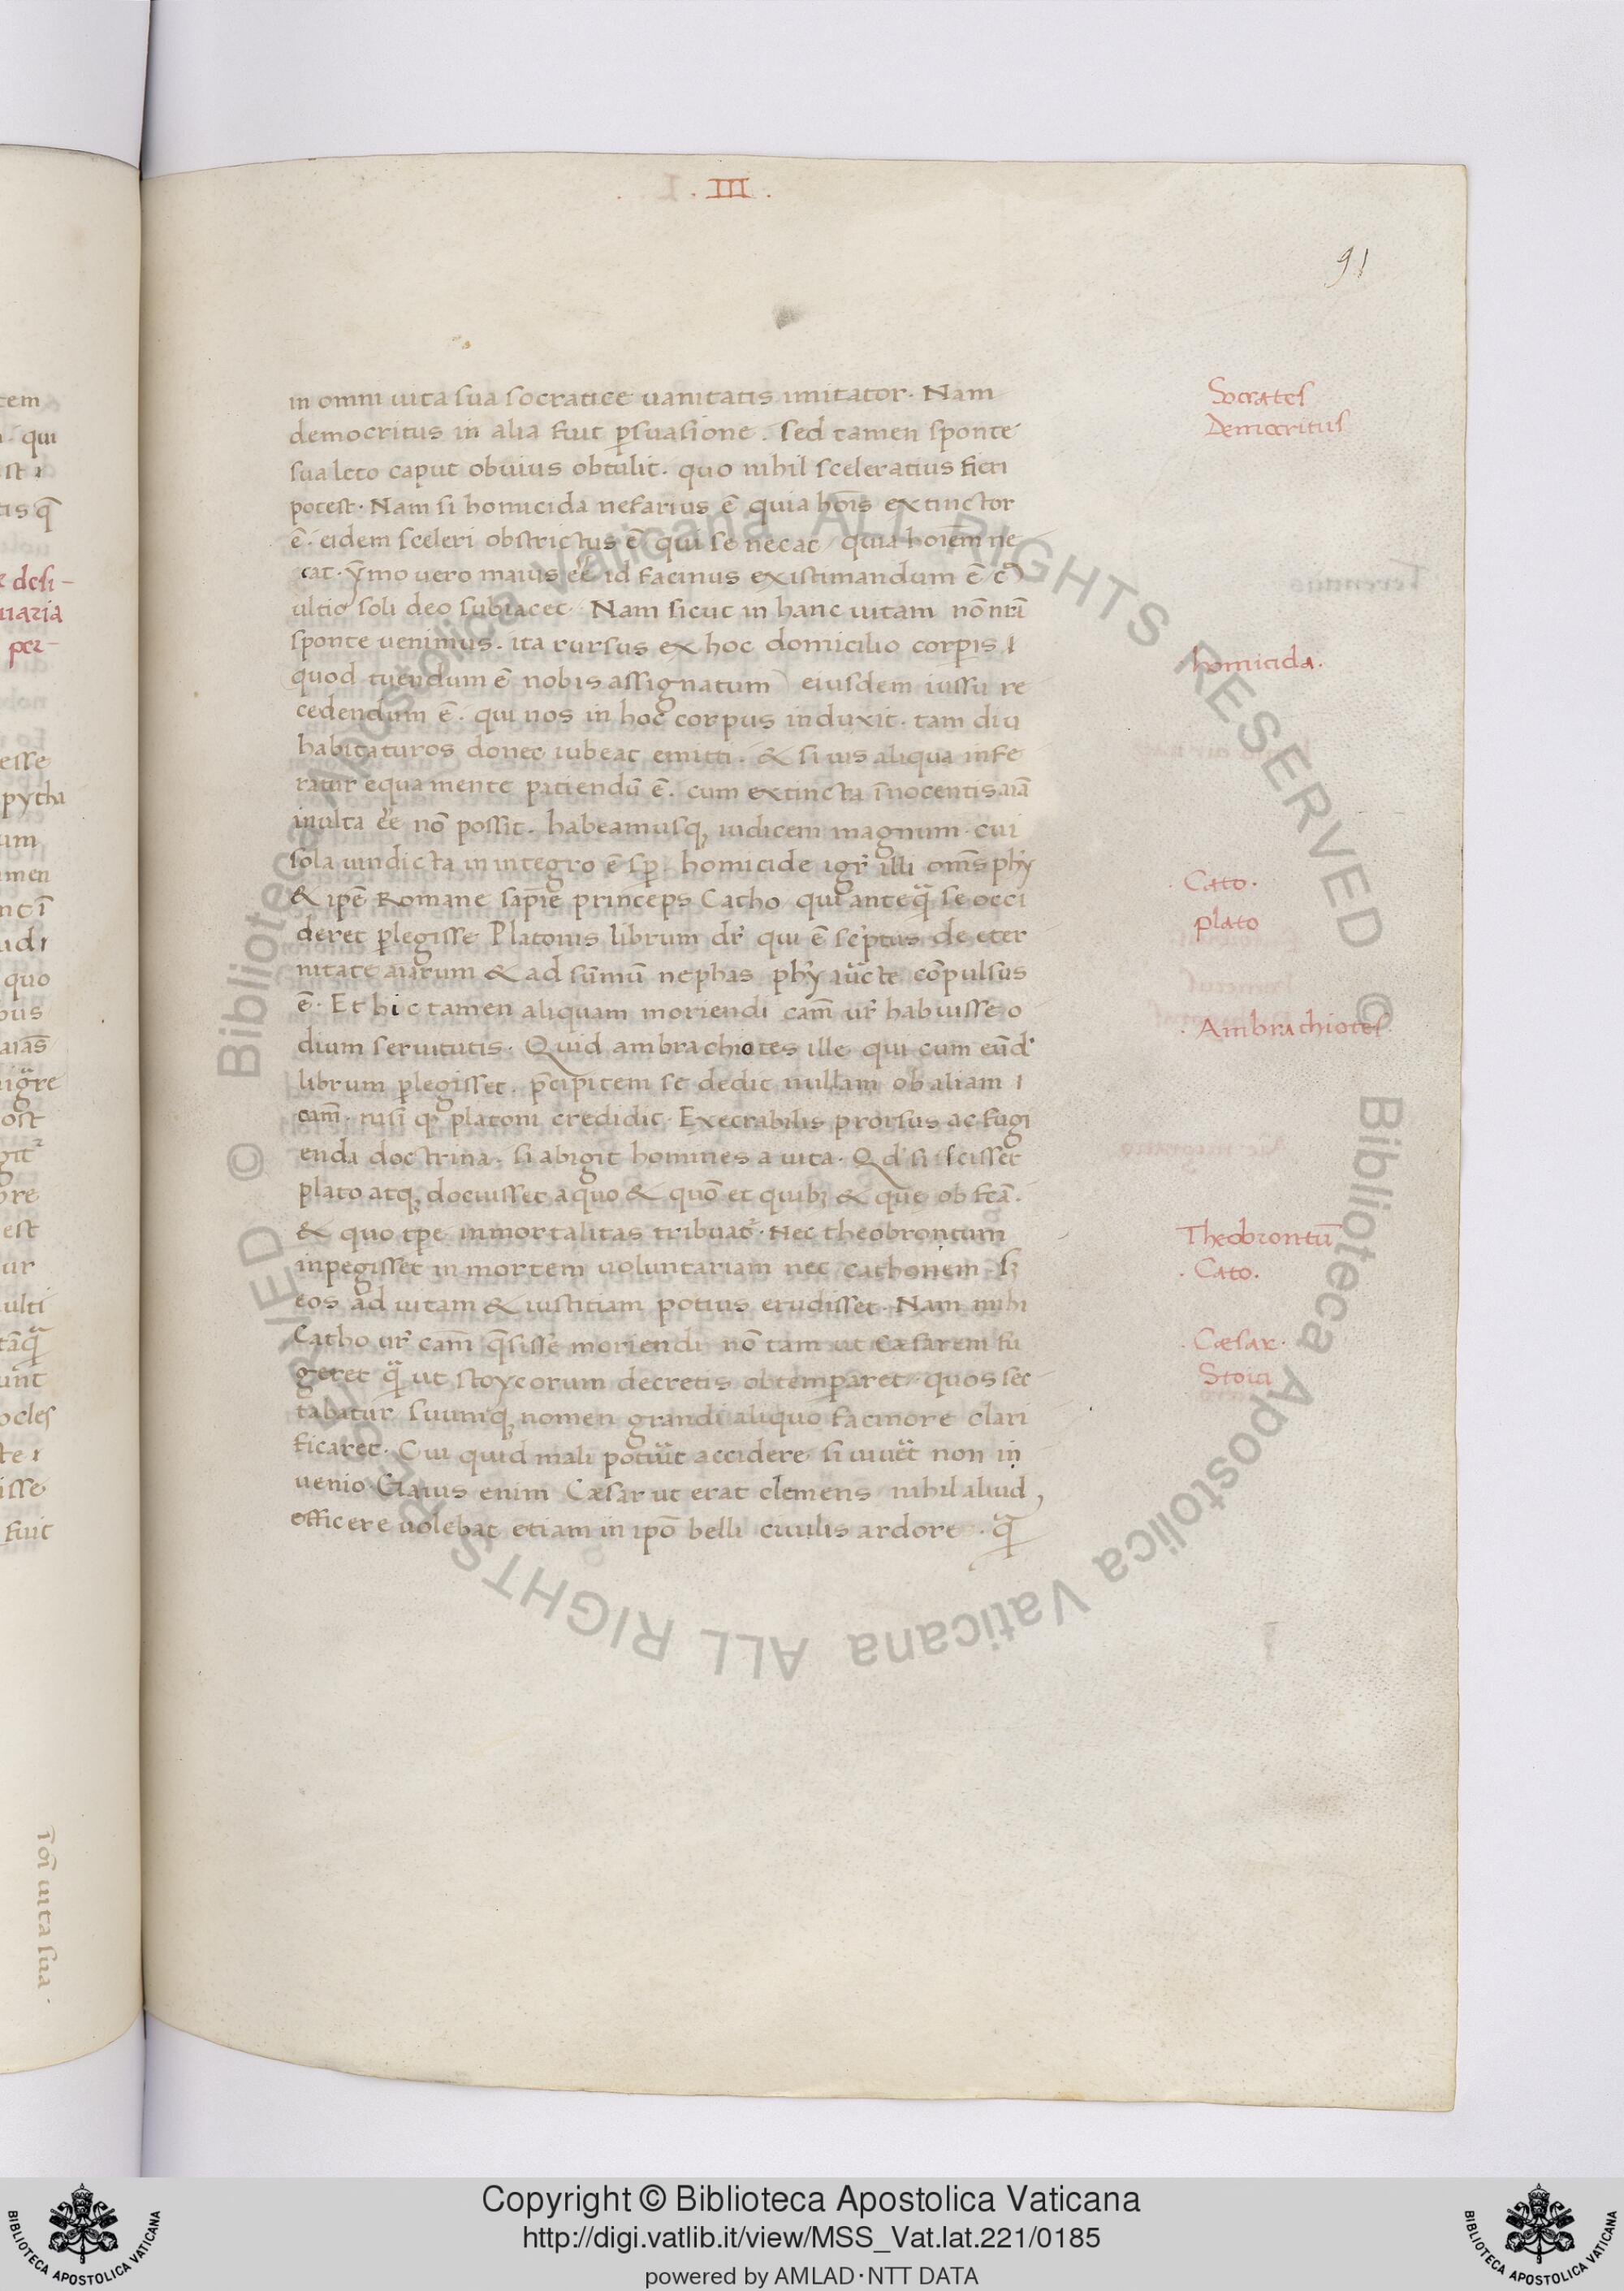 . III .
91
in omni uita sua socratice uanitatis imitator. Nam
democritus in alia fuit ꝑsuasione. sed tamen sponte
sua leto caput obuius obtulit. quo nihil sceleratius fieri
potest. Nam si homicida nefarius ē quia hoīs extinctor
ē. eidem sceleri obstrictus ē qui se necat quia hoīem ne
cat. ymo uero maius eē id facinus existimandum ē
ultio soli deo subiacet. Nam sicut in hanc uitam nō nrī
sponte uenimus. ita rursus ex hoc domicilio corꝑis
quod tuendum ē nobis assignatum eiusdem iussu re
cedendum ē. qui nos in hoc corpus induxit. tam diu
habitaturos donec iubeat emitti. & si uis aliqua infe
ratur equa mente patiendū ē. cum extincta īnocentis aīa
inulta eē nō possit. habeamusq; iudicem magnum cui
sola uindicta in integro ē sꝑ. homicide igr̄ illi om̄s phȳ
& ipē Romane sapīe princeps Catho qui anteq̄ se occi
deret ꝑlegisse Platonis librum dr̄ qui ē scͥptus de eter
nitate aīarum & ad sūmū nephas phȳ auc̄te cōpulsus
ē. Et hic tamen aliquam moriendi cām ur̄ habuisse o
dium seruitutis. Quid ambrachiotes ille qui cum eūd
librum ꝑlegisset. p̄cipitem se dedit nullam ob aliam
cām. nisi ꝙ platoni credidit. Execrabilis prorsus ac fugi
enda doctrina. si abigit homines a uita. Qd̄ si scisset
plato atq; docuisset a quo & quō et quibꝫ & que ob fc̄a.
& quo tp̄e inmortalitas tribuat̄. Nec theobrontum
inpegisset in mortem uoluntariam nec cathonem sꝫ
eos ad uitam & iustitiam potius erudisset. Nam mihi
Catho ur̄ cām q̄sisse moriendi nō tam ut Cæsarem fu
geret q̄ ut stoycorum decretis obtemꝑaret quos sec
tabatur suumq; nomen grandi aliquo facinore clari
ficaret. Cui quid mali potuīt accidere si uiuēt non in
uenio. Gaius enim Cæsar ut erat clemens nihil aliud
officere uolebat etiam in ipō belli ciuilis ardore. q̄
Socrates
Democritus
homicida.
. Cato.
plato
. Ambrachiotes.
Theobrontū
. Cato.
. Cæsar.
Stoici
qui
desi-
uaria
per-
esse
pytha
um
men
udi
quo
ost
est
ur
ulti
ocles
isse
fuit
uita sua.
© Biblioteca Apostolica Vaticana ALL RIGHTS RESERVED © Biblioteca Apostolica Vaticana ALL RIGHTS RESERVED
BIBLIOTECA APOSTOLICA VATICANA
Copyright © Biblioteca Apostolica Vaticana
http://digi.vatlib.it/view/MSS_Vat.lat.221/0185
powered by AMLAD·NTT DATA
BIBLIOTECA APOSTOLICA VATICANA